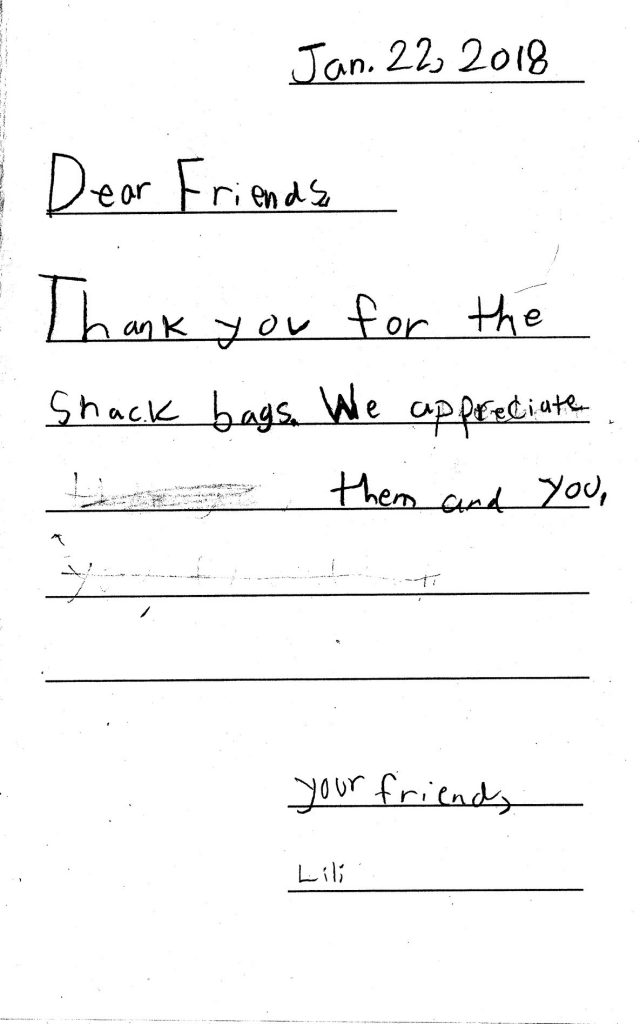 Jan. 22, 2018
Dear Friends,
Thank you for the
Snack bags. We appreciate
them and you,
your friend,
Lili